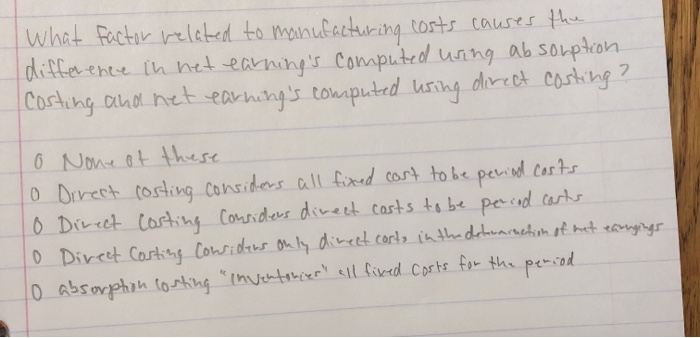 What factor related to manufacturing costs causes the
difference in net earning's computed using absorption
Costing and net earning's computed using direct costing?
o None of these
o Direct costing considers all fixed cost to be period costs
o Direct Costing Considers direct costs to be period costs
o Direct Costing Considers only direct costs in the determination of net earnings
o absorption costing "inventories" all fixed costs for the period